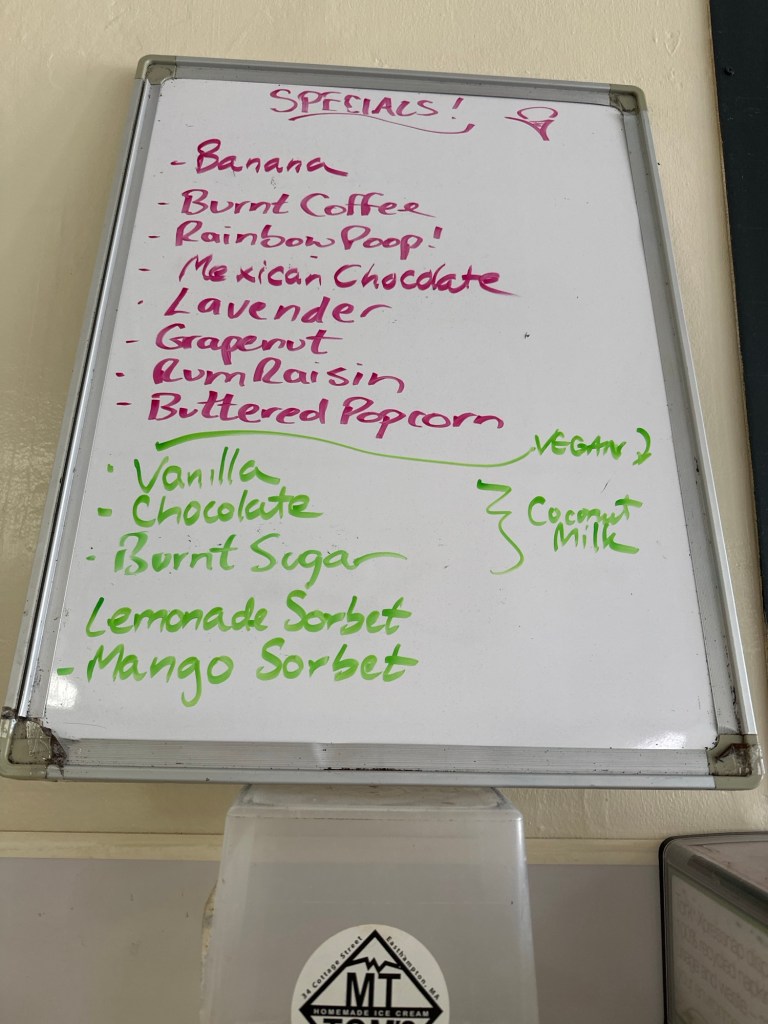 SPECIALS!
- Banana
- Burnt Coffee
- Rainbow Poop!
- Mexican Chocolate
- Lavender
- Grapenut
- Rum Raisin
- Buttered Popcorn
VEGAN
- Vanilla
- Chocolate
- Burnt Sugar
Coconut
Milk
Lemonade Sorbet
- Mango Sorbet
34 Cottage Street Easthampton, MA
MT
HOMEMADE ICE CREAM
TOM'S